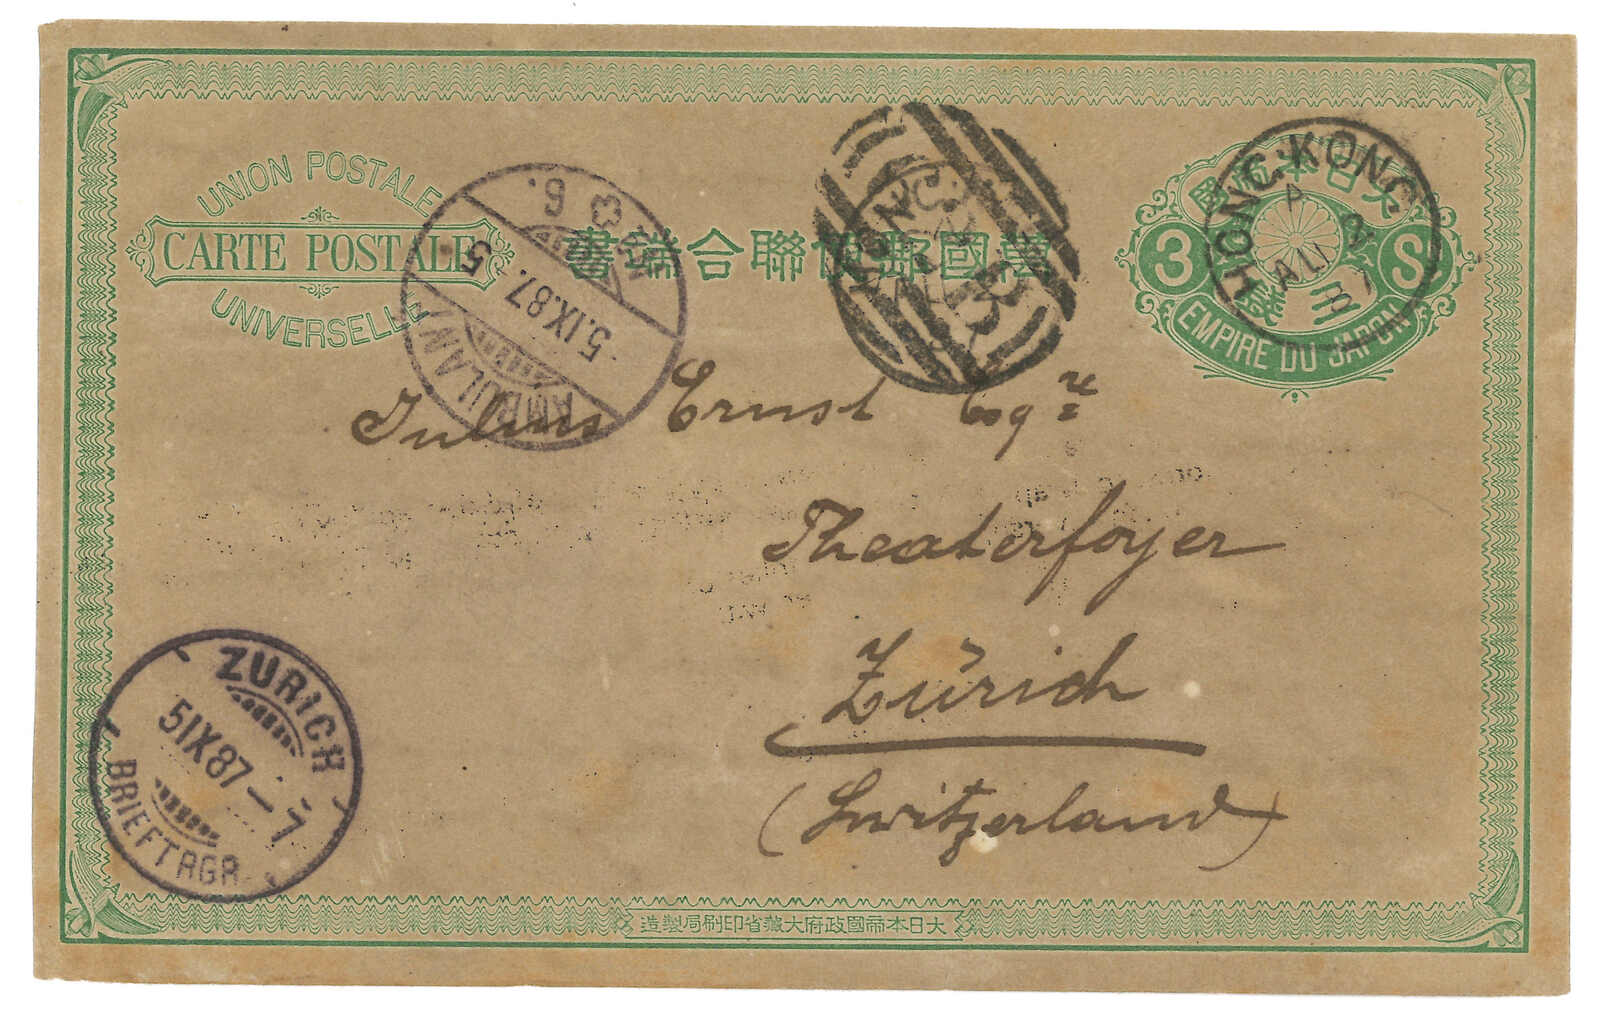 UNION POSTALE
CARTE POSTALE
UNIVERSELLE
萬國郵便聯合端書
大日本帝國
3 S
EMPIRE DU JAPON
HONG-KONG
A
87
B
AMBULANT
5.IX.87.
Nº 6.
Julius Ernst Esqre
Theaterfoyer
Zürich
(Switzerland)
ZÜRICH
5 IX 87 – 7
BRIEFTRGR.
大日本帝國政府大藏省印刷局製造